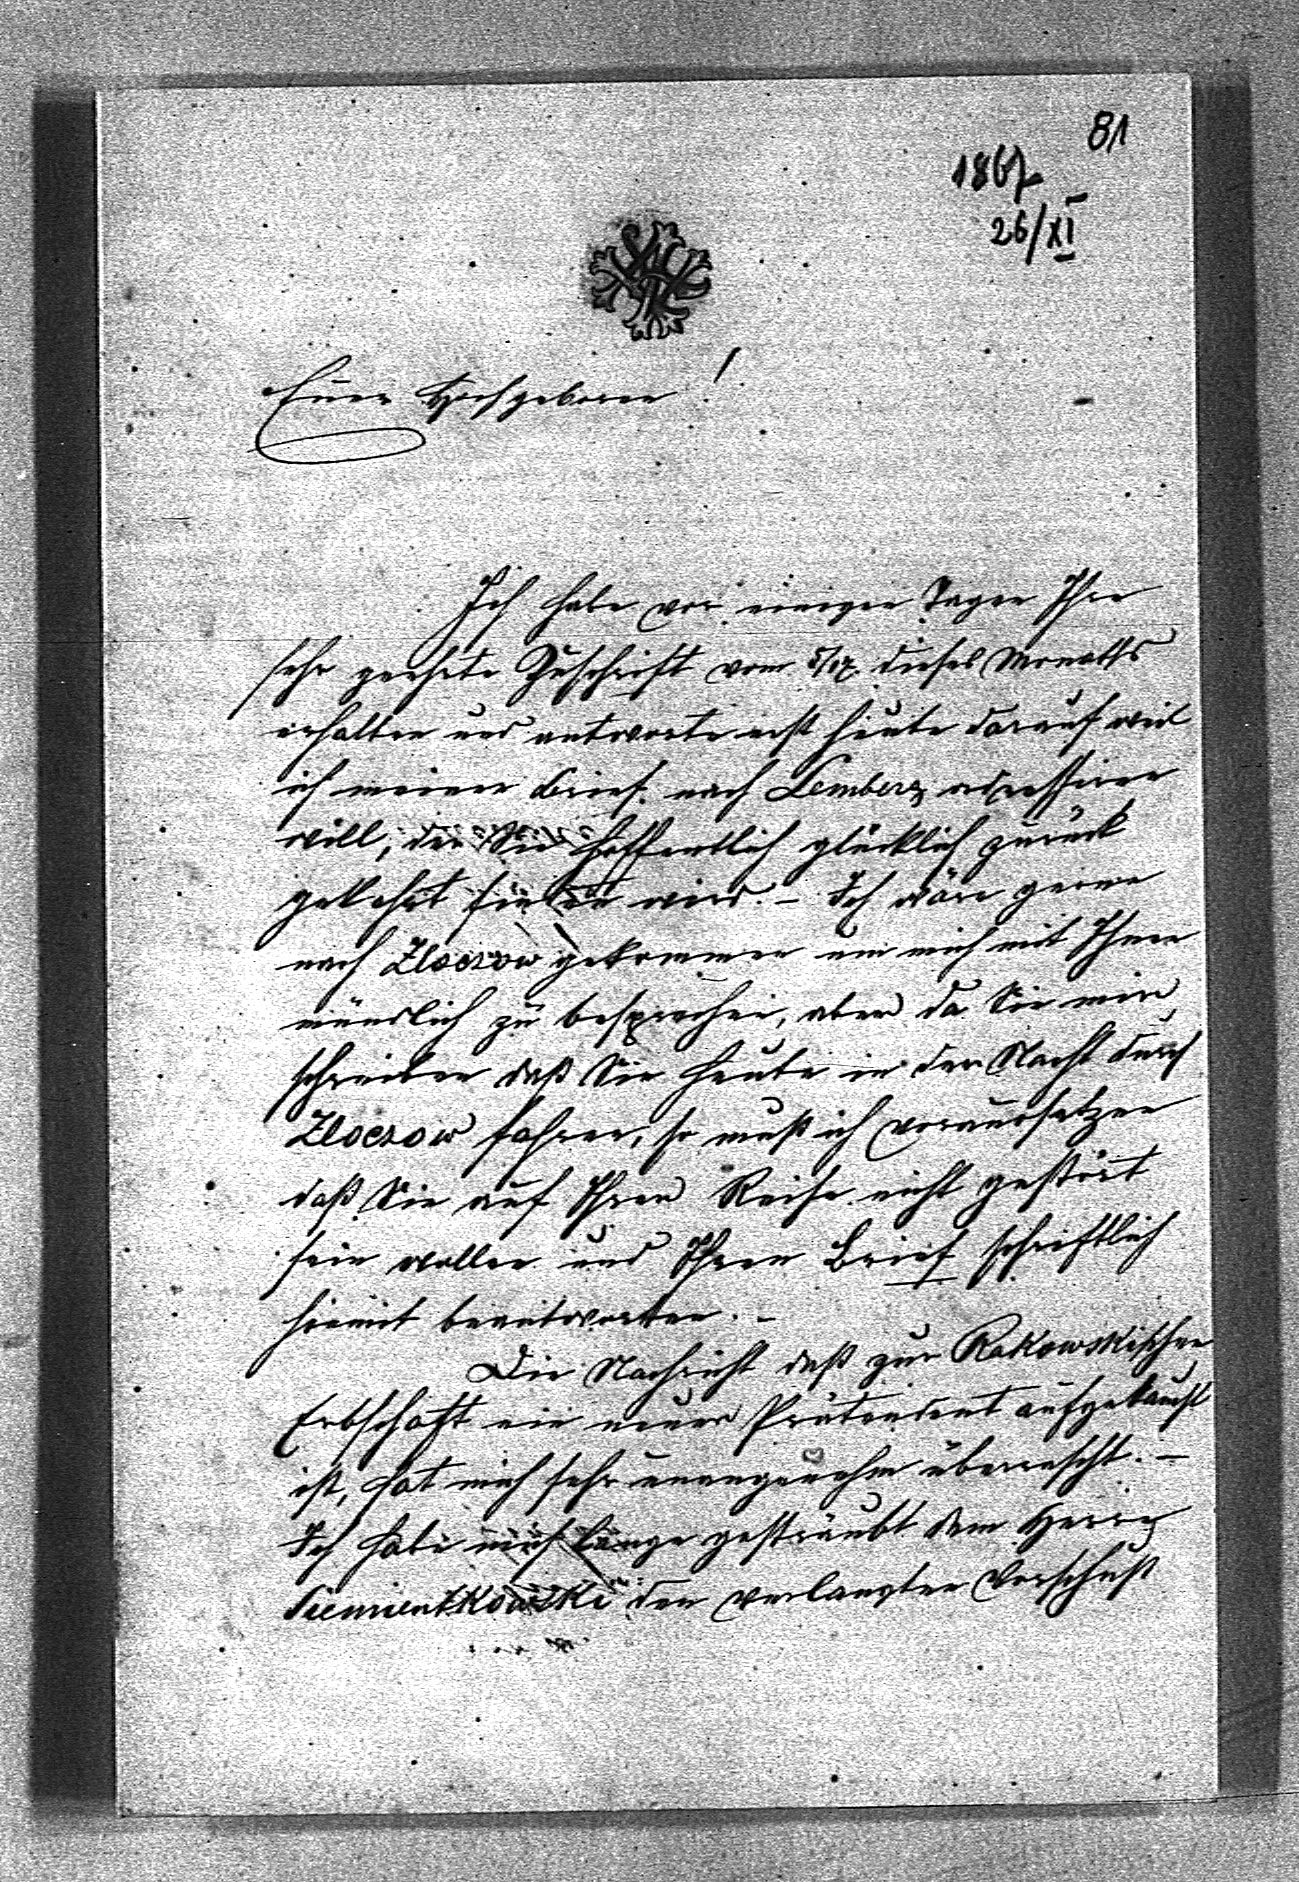 81
1867
26/XI
Euer Hochgeboren!
Ich habe vor einigen Tagen Ihre
sehr geehrte Zuschrift vom 5/17 dieses Monats
erhalten und antworte erst heute darauf weil
ich meinen Brief nach Lemberg adressiren
will, der Sie hoffentlich glücklich zurück
gekehrt finden wird. – Ich wäre gerne
nach Zloczow gekommen um mich mit Ihnen
mündlich zu besprechen, aber da Sie mir
schreiben daß Sie heute in der Nacht durch
Zloczow fahren, so muß ich voraussetzen
daß Sie auf Ihrer Reise nicht gestört
sein wollen und Ihren Brief schriftlich
hiemit beantworten. –
Die Nachricht daß zur Rakowskischen
Erbschaft ein neuer Prätendent aufgetaucht
ist, hat mich sehr unangenehm überrascht. –
Ich habe mich lange gesträubt dem Herrn
Siemientkowski den verlangten Vorschuß